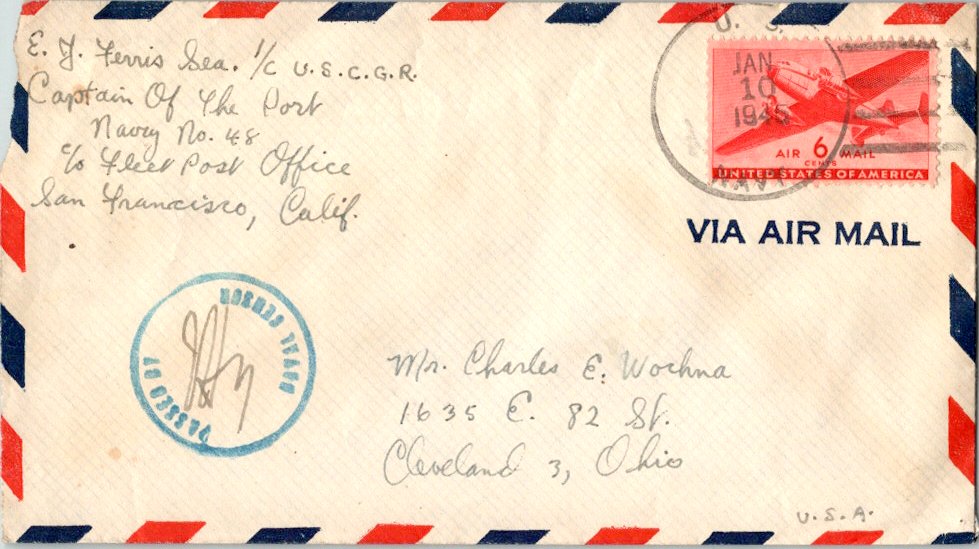 E. J. Ferris Sea. 1/c U.S.C.G.R.
Captain Of The Port
Navy No. 48
c/o Fleet Post Office
San Francisco, Calif.
U. S.
JAN
10
1945
NAVY
AIR 6 MAIL
CENTS
UNITED STATES OF AMERICA
VIA AIR MAIL
PASSED BY
NAVAL CENSOR
Mr. Charles E. Wochna
1635 E. 82 St.
Cleveland 3, Ohio
U.S.A.